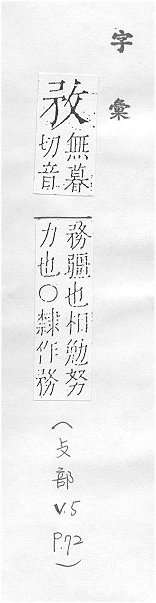 字彙
敄
無暮
切音
務疆也相勉努
力也○隸作務
(攴部
V.5
P.72)